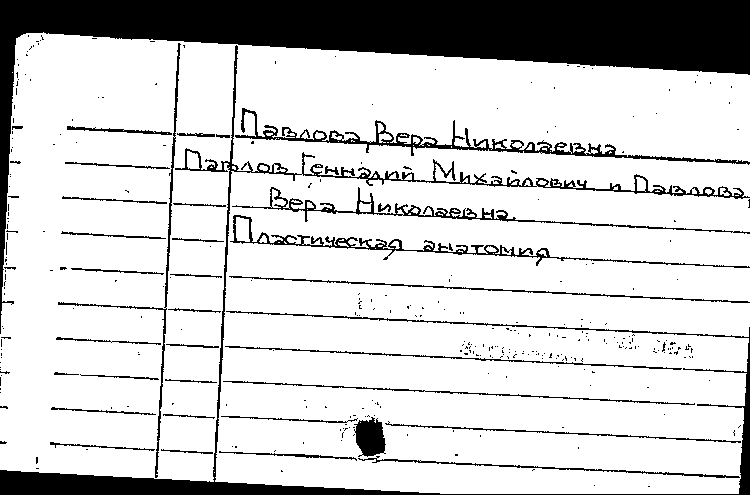 Павлова, Вера Николаевна.
Павлов, Геннадий Михайлович и Павлова,
Вера Николаевна.
Пластическая анатомия.